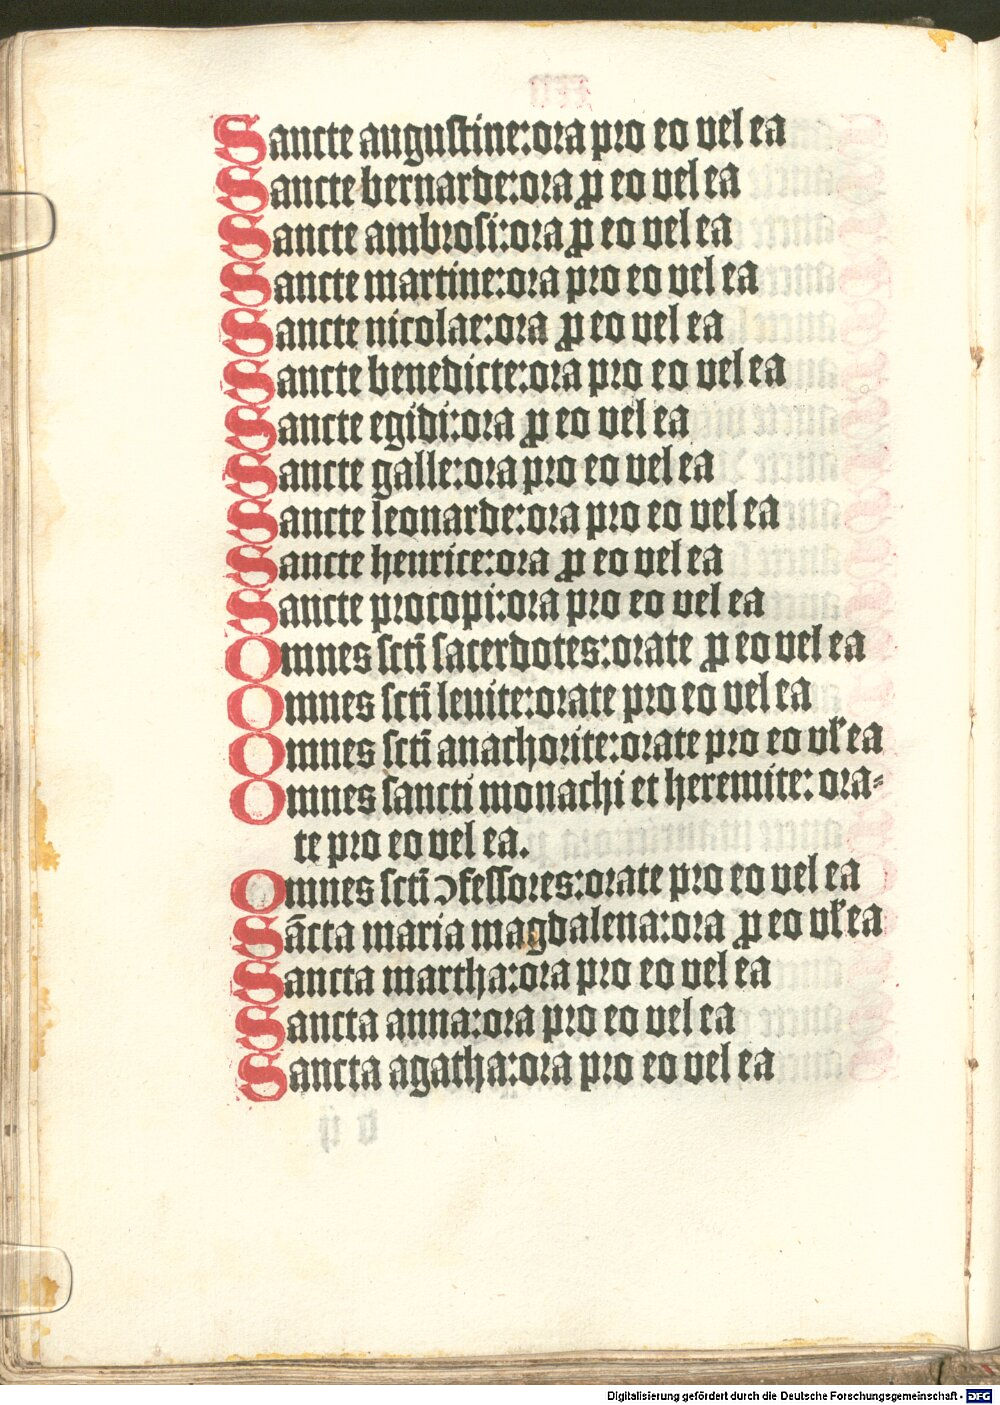 Sancte augustine:ora pro eo vel ea
Sancte bernarde:ora ꝓ eo vel ea
Sancte ambrosi:ora ꝓ eo vel ea
Sancte martine:ora pro eo vel ea
Sancte nicolae:ora ꝓ eo vel ea
Sancte benedicte:ora pro eo vel ea
Sancte egidi:ora ꝓ eo vel ea
Sancte galle:ora pro eo vel ea
Sancte leonarde:ora pro eo vel ea
Sancte henrice:ora ꝓ eo vel ea
Sancte procopi:ora pro eo vel ea
Omnes scti̅ sacerdotes:orate ꝓ eo vel ea
Omnes scti̅ levite:orate pro eo vel ea
Omnes scti̅ anachorite:orate pro eo vl̕ ea
Omnes sancti monachi et heremite: ora⸗
te pro eo vel ea.
Omnes scti̅ ↄfessores:orate pro eo vel ea
Sa̅cta maria magdalena:ora ꝓ eo vl̕ ea
Sancta martha:ora pro eo vel ea
Sancta anna:ora pro eo vel ea
Sancta agatha:ora pro eo vel ea
Digitalisierung gefördert durch die Deutsche Forschungsgemeinschaft - DFG